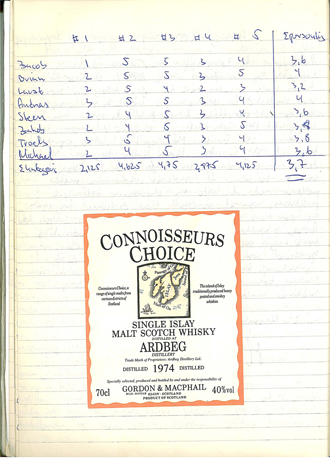 #1 #2 #3 #4 #5
Jacob 1 5 5 3 4 3,6
2 5 5 3 5 4
Laust 2 5 4 2 3 3,2
Andreas 3 5 5 3 4 4
Steen 2 4 5 3 4 3,6
Jakob 2 4 5 3 5 3,8
Troels 3 5 4 3 4 3,8
Michael 2 4 5 3 4 3,6
2,125 4,625 4,75 2,875 4,125 3,7
CONNOISSEURS
CHOICE
Connoisseurs Choice, a
range of single malts from
various districts of
Scotland
The island of Islay
traditionally produced heavy
peated and smokey
whiskies.
SINGLE ISLAY
MALT SCOTCH WHISKY
DISTILLED AT
ARDBEG
DISTILLERY
Trade Mark of Proprietors: Ardbeg Distillery Ltd.
DISTILLED 1974 DISTILLED
Specially selected, produced and bottled by and under the responsibility of
70cl GORDON & MACPHAIL 40%vol
ELGIN · SCOTLAND
PRODUCT OF SCOTLAND